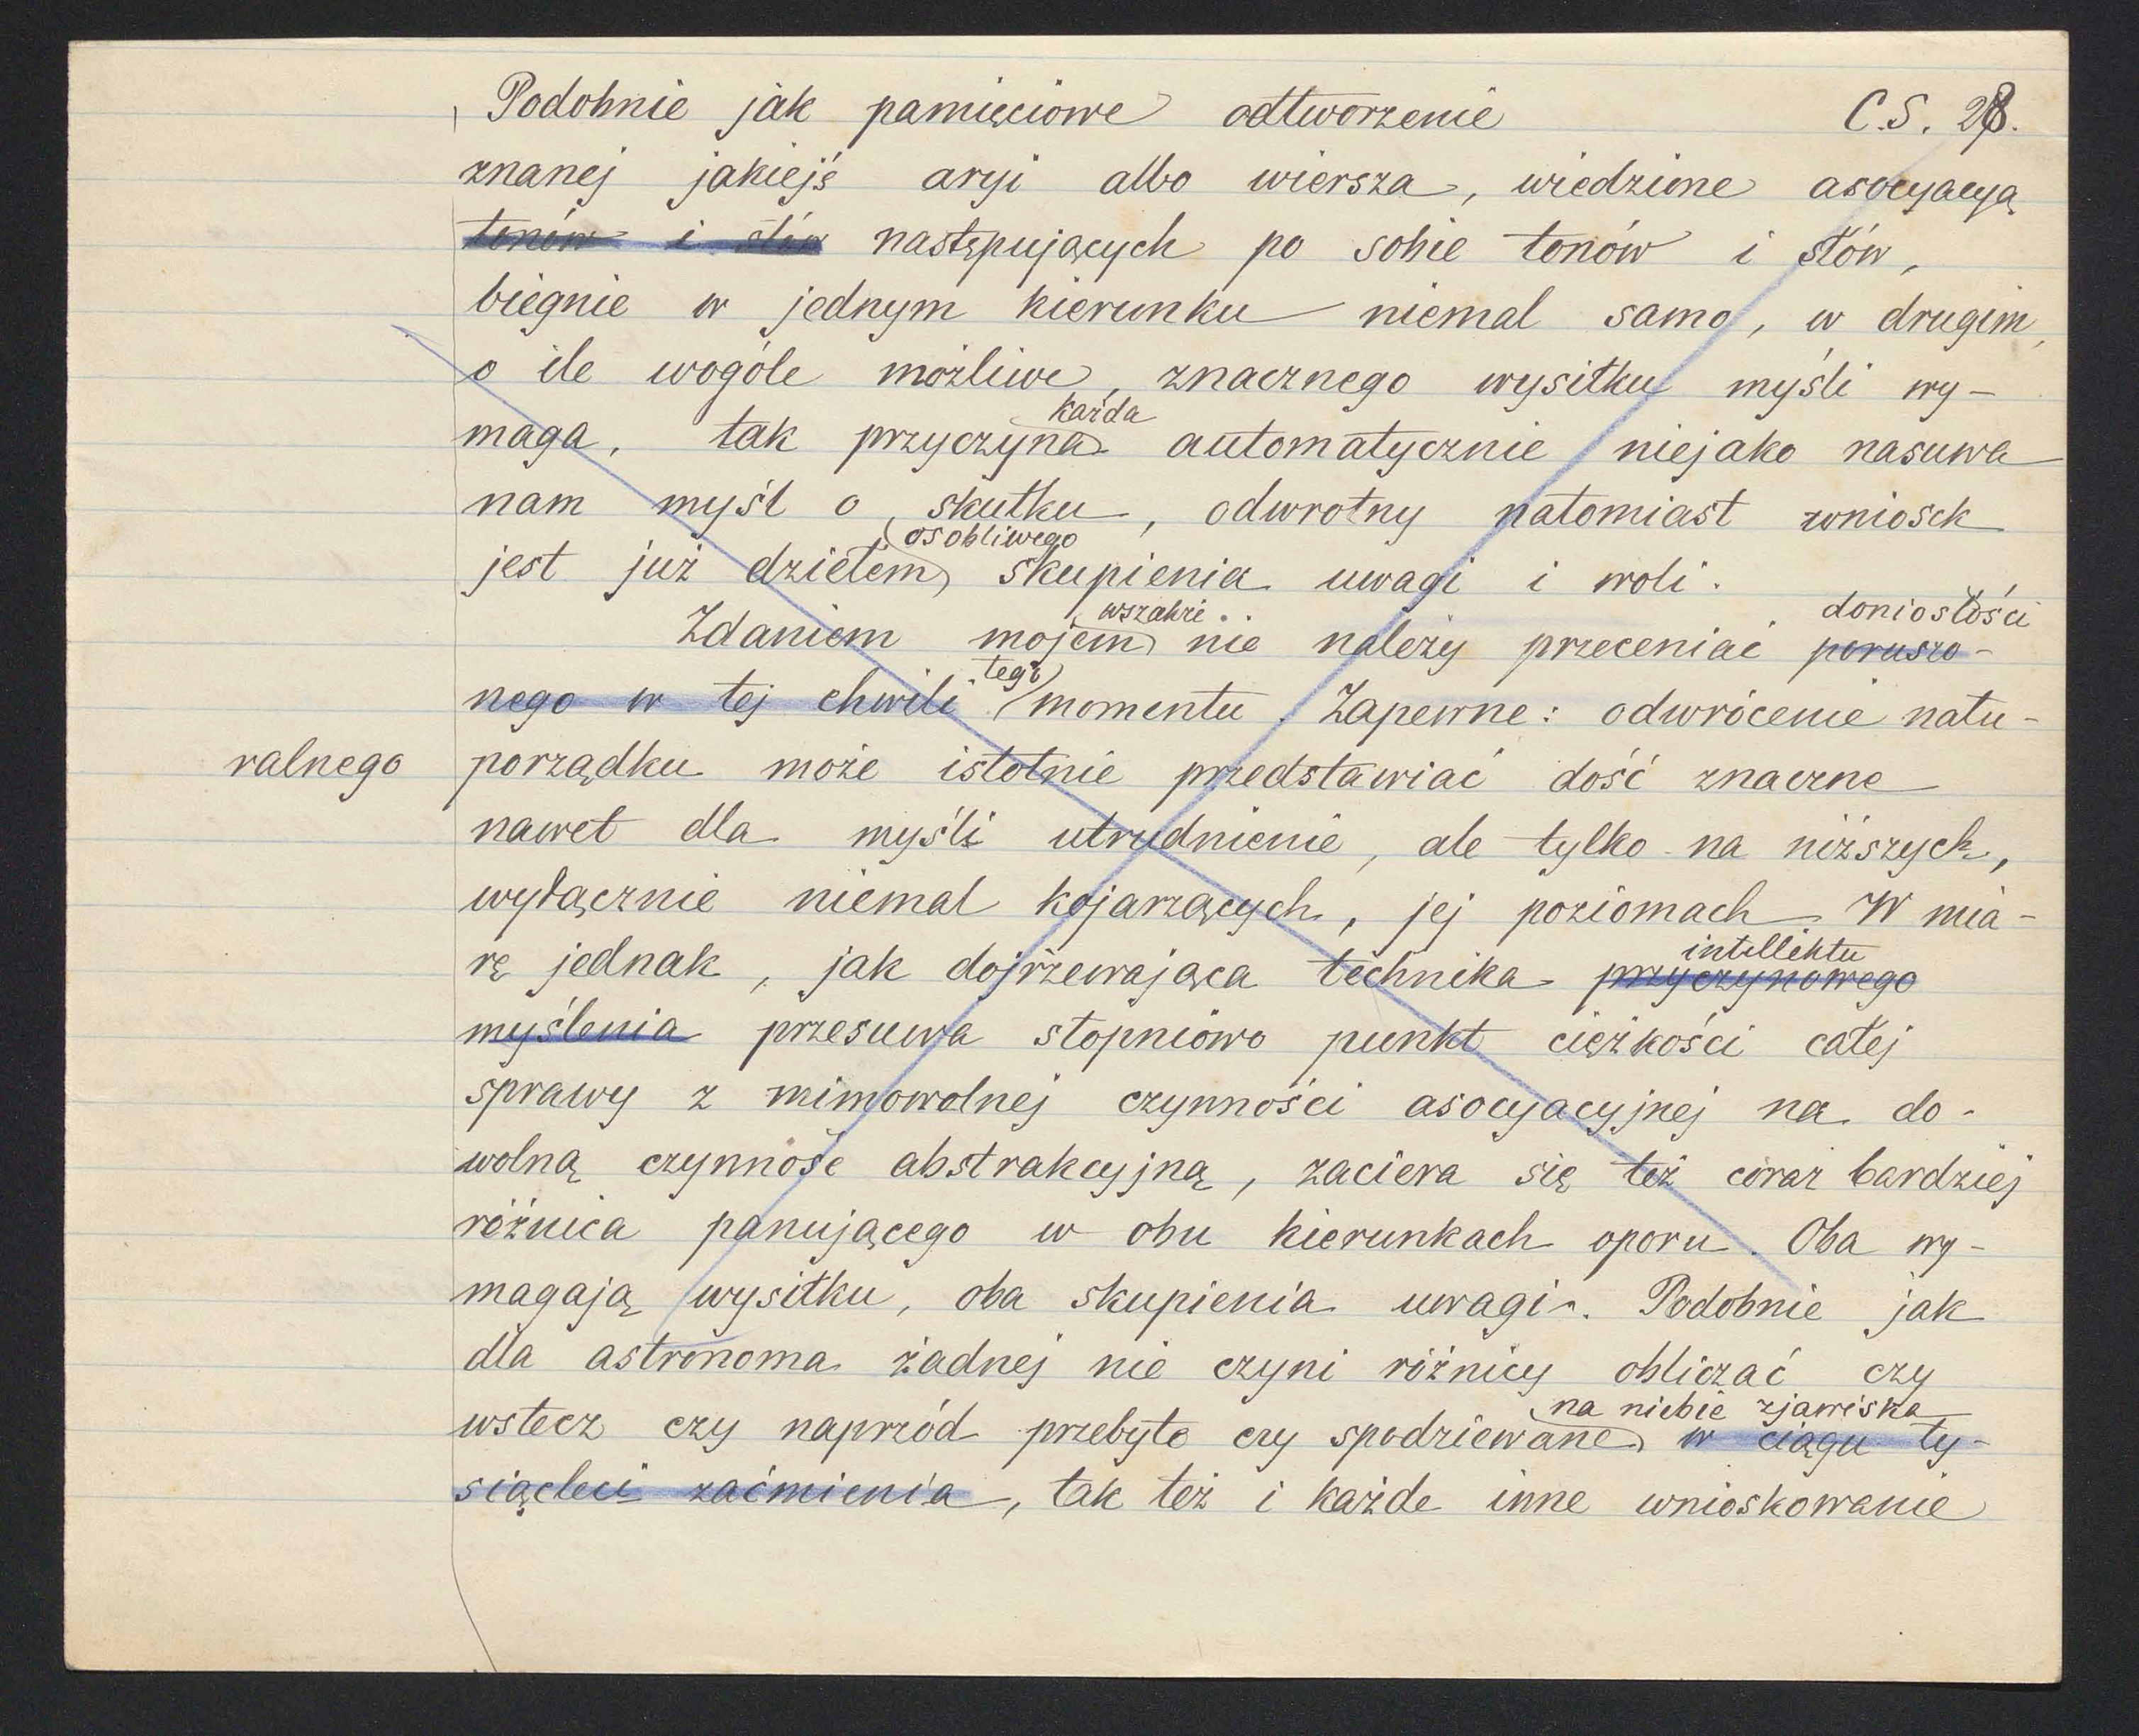 Podobnie jak pamięciowe odtworzenie C.S. 28.
znanej jakiejś aryi albo wiersza, wiedzione asocyacyą
tonów i słów następujących po sobie tonów i słów,
biegnie w jednym kierunku niemal samo, w drugim,
o ile wogóle możliwe, znacznego wysiłku myśli wy-
każda
maga, tak przyczyna automatycznie niejako nasuwa
nam myśl o skutku, odwrotny natomiast wniosek
osobliwego
jest już dziełem skupienia uwagi i woli.
wszakże doniosłości
Zdaniem mojem nie należy przeceniać poruszo-
tego
nego w tej chwili momentu. Zapewne: odwrócenie natu-
ralnego porządku może istotnie przedstawiać dość znaczne
nawet dla myśli utrudnienie, ale tylko na niższych,
wyłącznie niemal kojarzących, jej poziomach. W mia-
intellektu
rę jednak, jak dojrzewająca technika przyczynowego
myślenia przesuwa stopniowo punkt ciężkości całej
sprawy z mimowolnej czynności asocyacyjnej na do-
wolną czynność abstrakcyjną, zaciera się też coraz bardziej
różnica panującego w obu kierunkach oporu. Oba wy-
magają wysiłku, oba skupienia uwagi. Podobnie jak
dla astronoma żadnej nie czyni różnicy obliczać czy
na niebie zjawiska
wstecz czy naprzód przebyte czy spodziewane w ciągu ty-
siącleci zaćmienia, tak też i każde inne wnioskowanie